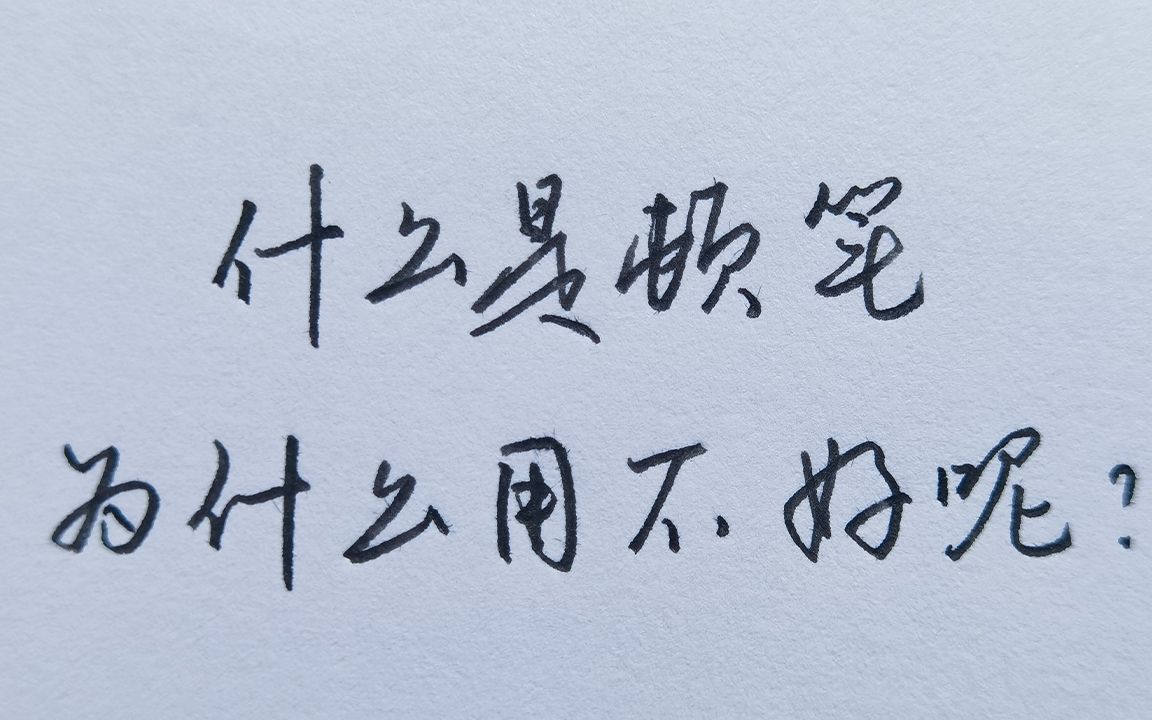 什么是顿笔
为什么用不好呢?